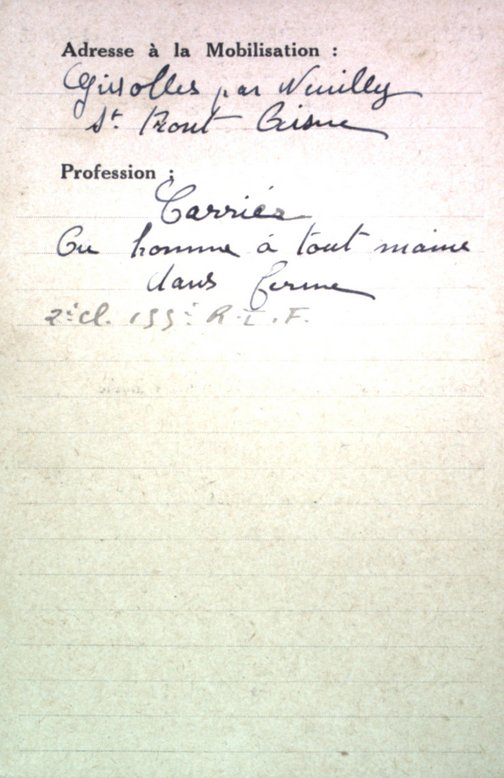 Adresse à la Mobilisation :
Grisolles par Neuilly
St. Front Aisne
Profession :
Carrier
Ou homme à tout maine
dans ferme
2e cl. 155e R.I.F.